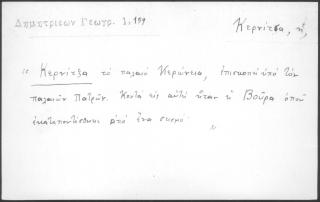 Δημητριέων Γεωγρ. 1,189
Κερνίτσα, ἡ,
" Κερνίτζα τὸ παλαιὸ Κερύνεια, ἐπισκοπὴ ὑπὸ τὸν
παλαιῶν Πατρῶν. Κοντὰ εἰς αὐτὸ ἦταν ἡ Βοῦρα ὁποῦ
ἐκαταποντίσθηκε ἀπὸ ἕνα σεισμό "